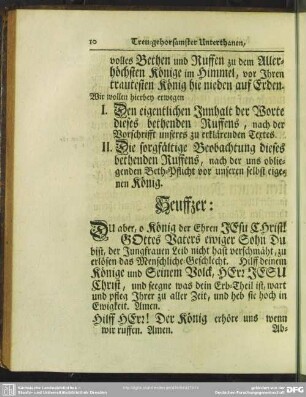 10 Treu-gehorsamster Unterthanen,
volles Bethen und Ruffen zu dem Aller-
höchsten Könige im Himmel, vor Ihren
trautesten König hie nieden auf Erden.
Wir wollen hierbey erwegen
I. Den eigentlichen Innhalt der Worte
dieses bethenden Ruffens, nach der
Vorschrifft unseres zu erklärenden Textes.
II. Die sorgfältige Beobachtung dieses
bethenden Ruffens, nach der uns oblie-
genden Beth-Pflicht vor unseren selbst eige-
nen König.
Seuffzer:
DU aber, o König der Ehren JEsu CHrist!
GOttes Vaters ewiger Sohn Du
bist, der Jungfrauen Leib nicht hast verschmäht, zu
erlösen das Menschliche Geschlecht. Hilff deinem
Könige und Seinem Volck, HErr JESU
Christ, und seegne was dein Erb-Theil ist, wart
und pfleg Ihrer zu aller Zeit, und heb sie hoch in
Ewigkeit. Amen.
Hilff HErr! Der König erhöre uns wenn
wir ruffen. Amen.
Ab-